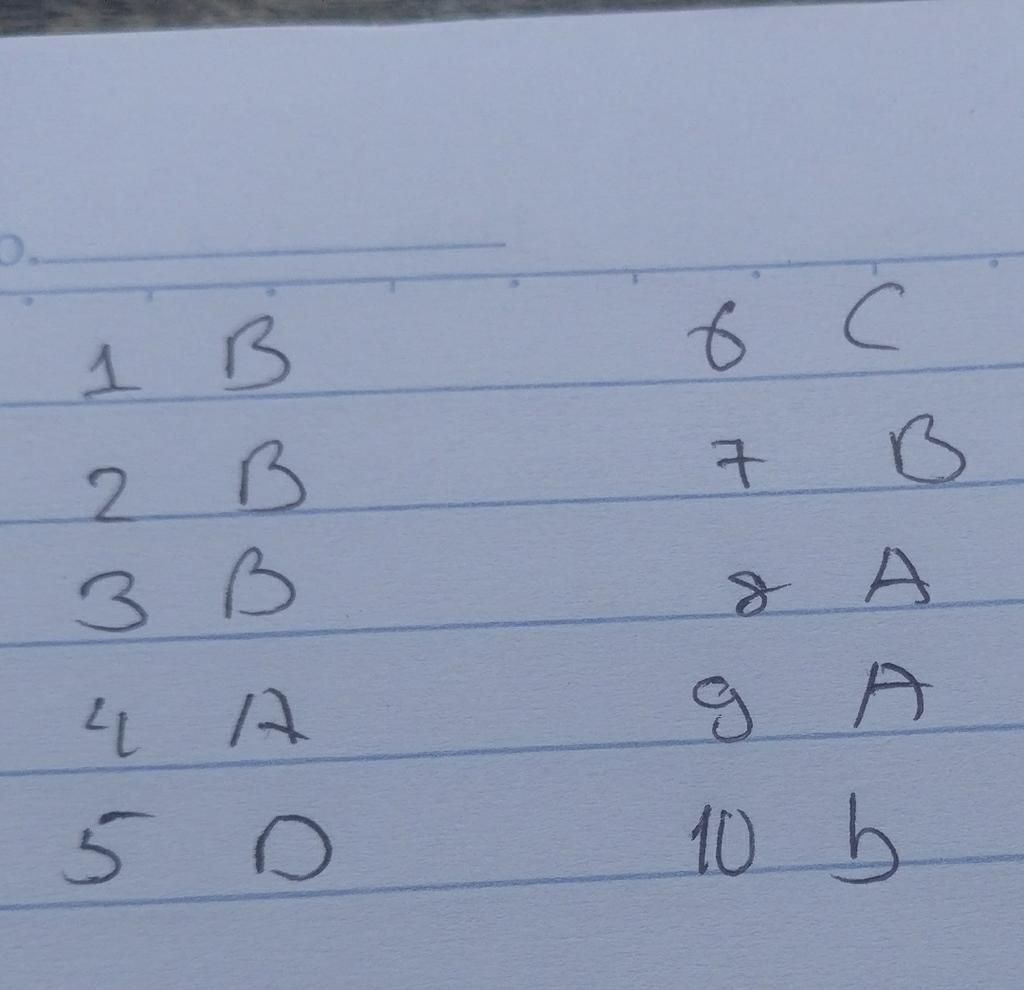 o.
1 B 6 C
2 B 7 B
3 B 8 A
4 A 9 A
5 D 10 b